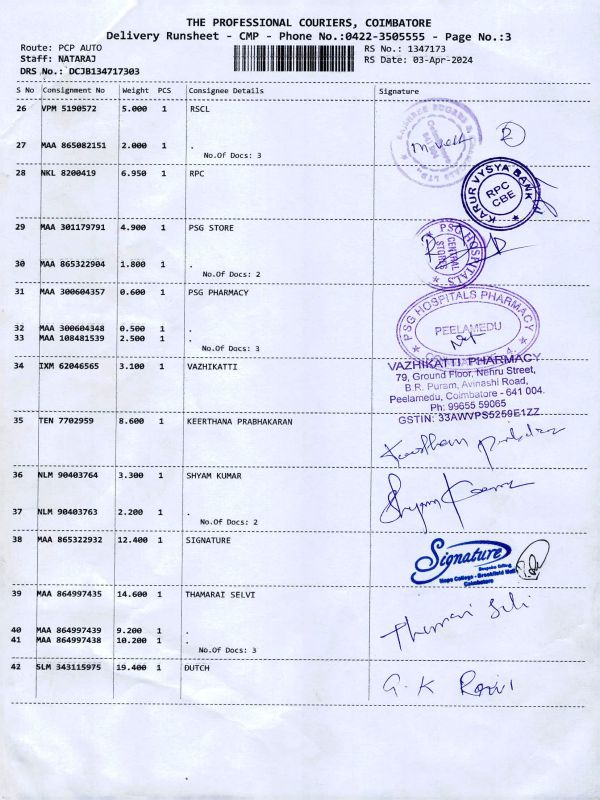 THE PROFESSIONAL COURIERS, COIMBATORE
Delivery Runsheet - CMP - Phone No.:0422-3505555 - Page No.:3
Route: PCP AUTO RS No.: 1347173
Staff: NATARAJ RS Date: 03-Apr-2024
DRS No.: DCJB134717303
S No Consignment No Weight PCS Consignee Details Signature
26 VPM 5190572 5.000 1 RSCL
27 MAA 865082151 2.000 1 .
No.Of Docs: 3
28 NKL 8200419 6.950 1 RPC
KARUR VYSYA BANK
RPC
CBE
29 MAA 301179791 4.900 1 PSG STORE
PSG HOSPITALS
GENERAL
STORES
30 MAA 865322904 1.800 1 .
No.Of Docs: 2
31 MAA 300604357 0.600 1 PSG PHARMACY
PSG HOSPITALS PHARMACY
PEELAMEDU
32 MAA 300604348 0.500 1 .
33 MAA 108481539 2.500 1 .
No.Of Docs: 3
34 IXM 62046565 3.100 1 VAZHIKATTI
VAZHIKATTI PHARMACY
79, Ground Floor, Nehru Street,
B.R. Puram, Avinashi Road,
Peelamedu, Coimbatore - 641 004.
Ph: 99655 59065
GSTIN: 33AWVPS5269E1ZZ
35 TEN 7702959 8.600 1 KEERTHANA PRABHAKARAN
36 NLM 90403764 3.300 1 SHYAM KUMAR
37 NLM 90403763 2.200 1 .
No.Of Docs: 2
38 MAA 865322932 12.400 1 SIGNATURE
Signature
Hope College - Brookfield Mall
Coimbatore
39 MAA 864997435 14.600 1 THAMARAI SELVI
40 MAA 864997439 9.200 1 .
41 MAA 864997438 10.200 1 .
No.Of Docs: 3
42 SLM 343115975 19.400 1 DUTCH
G.K Ravi